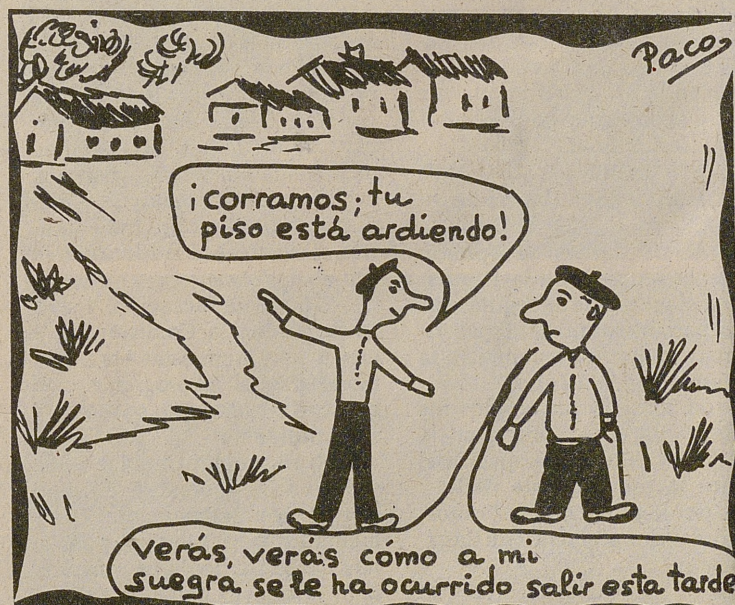 Paco
¡corramos; tu
piso está ardiendo!
verás, verás cómo a mi
suegra se le ha ocurrido salir esta tarde